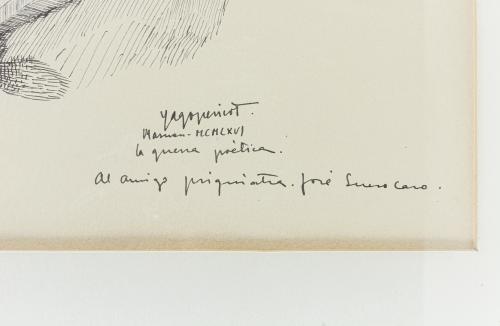 Yagopericot.
MCMLXVI
la guerra poètica.
Al amigo psiquiatra. José Suero Caro.